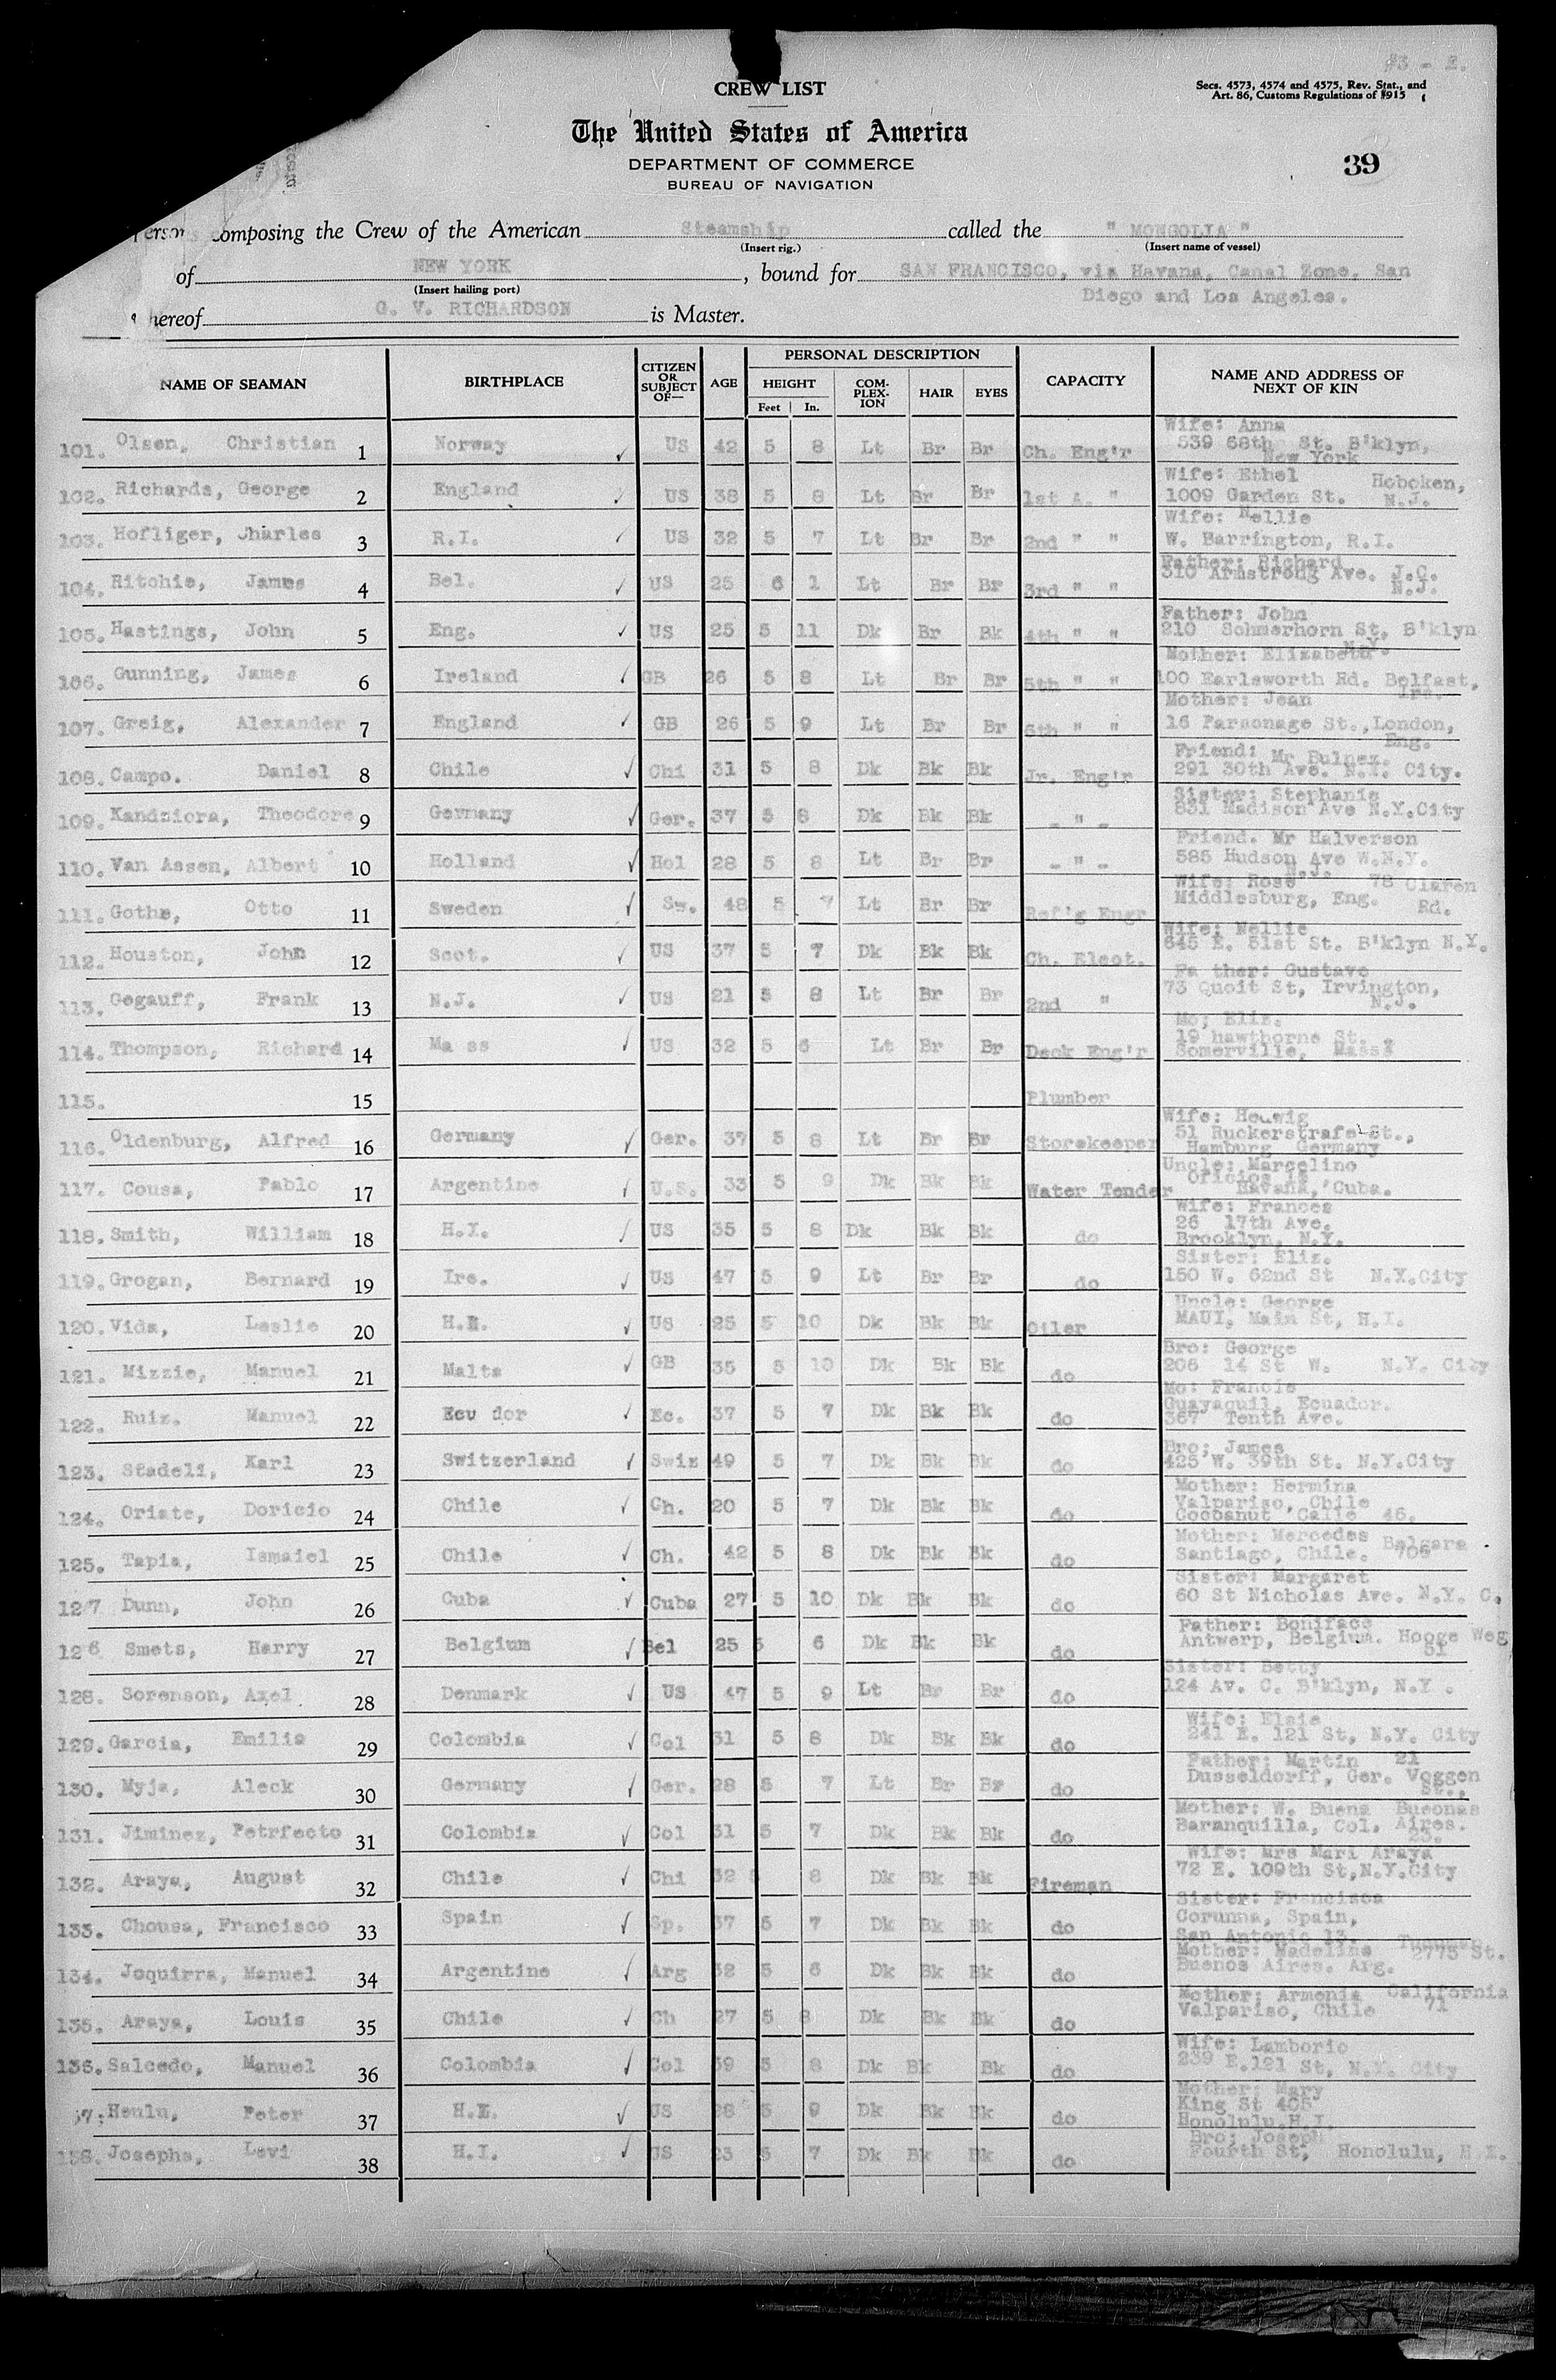 #3 - E.
CREW LIST
Secs. 4573, 4574 and 4575, Rev. Stat., and
Art. 86, Customs Regulations of 1915
The United States of America
DEPARTMENT OF COMMERCE
BUREAU OF NAVIGATION
39
composing the Crew of the American Steamship called the " MONGOLIA "
(Insert rig.) (Insert name of vessel)
of NEW YORK, bound for SAN FRANCISCO, via Havana, Canal Zone, San
(Insert hailing port) Diego and Los Angeles.
hereof G. V. RICHARDSON is Master.
NAME OF SEAMAN BIRTHPLACE CITIZEN OR SUBJECT OF— AGE PERSONAL DESCRIPTION HEIGHT Feet In. COM-PLEX-ION HAIR EYES CAPACITY NAME AND ADDRESS OF NEXT OF KIN
Wife: Anna
101. Olsen, Christian 1 Norway ✓ US 42 5 8 Lt Br Br Ch. Eng'r 539 68th St. B'klyn,
New York
Wife: Ethel Hoboken,
102. Richards, George 2 England ✓ US 38 5 8 Lt Br Br 1st A. " 1009 Garden St. N.J.
Wife: Nellie
103. Hofliger, Charles 3 R.I. ✓ US 32 5 7 Lt Br Br 2nd " " W. Barrington, R.I.
Father: Richard
104. Ritchie, James 4 Bel. ✓ US 25 6 1 Lt Br Br 3rd " " 310 Armstrong Ave. J.C.
N.J.
Father: John
105. Hastings, John 5 Eng. ✓ US 25 5 11 Dk Br Bk 4th " " 210 Schmerhorn St. B'klyn
N.Y.
Mother: Elizabeth
106. Gunning, James 6 Ireland ✓ GB 26 5 8 Lt Br Br 5th " " 100 Earlsworth Rd. Belfast,
Ire.
Mother: Jean
107. Greig, Alexander 7 England ✓ GB 26 5 9 Lt Br Br 6th " " 16 Parsonage St., London,
Eng.
Friend: Mr
108. Campo. Daniel 8 Chile ✓ Chi 31 5 8 Dk Bk Bk Jr. Eng'r 291 30th Ave. N.Y. City.
Sister: Stephanie
109. Kandziora, Theodore 9 Germany ✓ Ger. 37 5 8 Dk Bk Bk - " - 831 Madison Ave N.Y.City
Friend. Mr Halverson
110. Van Assen, Albert 10 Holland ✓ Hol 28 5 8 Lt Br Br - " - 585 Hudson Ave W.N.Y.
N.J.
Wife: Rose 78 Claren
111. Gothe, Otto 11 Sweden ✓ Sw. 48 5 7 Lt Br Br Ref'g Engr Middlesburg, Eng. Rd.
Wife: Nellie
112. Houston, John 12 Scot. ✓ US 37 5 7 Dk Bk Bk Ch. Elect. 645 E. 51st St. B'klyn N.Y.
Fa ther: Gustave
113. Gegauff, Frank 13 N.J. ✓ US 21 5 8 Lt Br Br 2nd " 73 Quoit St, Irvington,
N.J.
Mo; Eliz.
114. Thompson, Richard 14 Ma ss ✓ US 32 5 6 Lt Br Br Deck Eng'r 19 hawthorne St.
Somerville, Mass
115. 15 Plumber
Wife: Hedwig
116. Oldenburg, Alfred 16 Germany ✓ Ger. 37 5 8 Lt Br Br Storekeeper 51 Ruckerstrafe St.,
Hamburg Germany
Uncle: Marcelino
117. Cousa, Pablo 17 Argentine ✓ U.S. 33 5 9 Dk Bk Bk Water Tender Oficios
Havana, Cuba.
Wife: Frances
118. Smith, William 18 H.I. ✓ US 35 5 8 Dk Bk Bk do 26 17th Ave.
Brooklyn, N.Y.
Sister: Eliz.
119. Grogan, Bernard 19 Ire. ✓ US 47 5 9 Lt Br Br do 150 W. 62nd St N.Y.City
Uncle: George
120. Vida, Leslie 20 H.I. ✓ US 25 5 10 Dk Bk Bk Oiler MAUI, Main St, H.I.
Bro: George
121. Mizzie, Manuel 21 Malta ✓ GB 35 5 10 Dk Bk Bk do 208 14 St W. N.Y. City
Mo: Francis
122. Ruiz. Manuel 22 Ecu dor ✓ Ec. 37 5 7 Dk Bk Bk do Guayaquil, Ecuador.
367 Tenth Ave.
Bro; James
123. Stadeli, Karl 23 Switzerland ✓ Swiz 49 5 7 Dk Bk Bk do 425 W. 39th St. N.Y.City
Mother: Hermina
124. Oriate, Doricio 24 Chile ✓ Ch. 20 5 7 Dk Bk Bk do Valpariso, Chile
Cocoanut Calle 46.
Mother: Mercedes Balgara
125. Tapia, Ismaiel 25 Chile ✓ Ch. 42 5 8 Dk Bk Bk do Santiago, Chile. 706
Sister: Margaret
127 Dunn, John 26 Cuba ✓ Cuba 27 5 10 Dk Bk Bk do 60 St Nicholas Ave. N.Y. C.
Father: Boniface
126 Smets, Harry 27 Belgium ✓ Bel 25 5 6 Dk Bk Bk do Antwerp, Belgium. Hooge Weg
51
Sister: Betty
128. Sorenson, Axel 28 Denmark ✓ US 47 5 9 Lt Br Br do 124 Av. C. B'klyn, N.Y.
Wife: Elsie
129. Garcia, Emilia 29 Colombia ✓ Col 31 5 8 Dk Bk Bk do 241 E. 121 St, N.Y. City
Father: Martin 21
130. Myja, Aleck 30 Germany ✓ Ger. 28 5 7 Lt Br Br do Dusseldorff, Ger. Voggen
St.,
Mother: W. Buena Bueonas
131. Jiminez, Petrfecto 31 Colombia ✓ Col 31 5 7 Dk Bk Bk do Baranquilla, Col. Aires.
23.
Wife: Mrs Mari Araya
132. Araya, August 32 Chile ✓ Chi 32 5 8 Dk Bk Bk Fireman 72 E. 109th St,N.Y.City
Sister: Francisca
133. Chousa, Francisco 33 Spain ✓ Sp. 37 5 7 Dk Bk Bk do Corunna, Spain,
San Antonio 13.
Mother: Madeline 2775 St.
134. Joquirra, Manuel 34 Argentine ✓ Arg 32 5 6 Dk Bk Bk do Buenos Aires. Arg.
Mother: Armonia California
135. Araya, Louis 35 Chile ✓ Ch 27 5 8 Dk Bk Bk do Valpariso, Chile 71
Wife: Lamborio
136. Salcedo, Manuel 36 Colombia ✓ Col 39 5 8 Dk Bk Bk do 239 E.121 St, N.Y. City
Mother: Mary
37. Heulu, Peter 37 H.I. ✓ US 28 5 9 Dk Bk Bk do King St 405
Honolulu.H.I.
Bro; Joseph
138. Josephs, Levi 38 H.I. ✓ US 23 5 7 Dk Bk Bk do Fourth St, Honolulu, H.I.